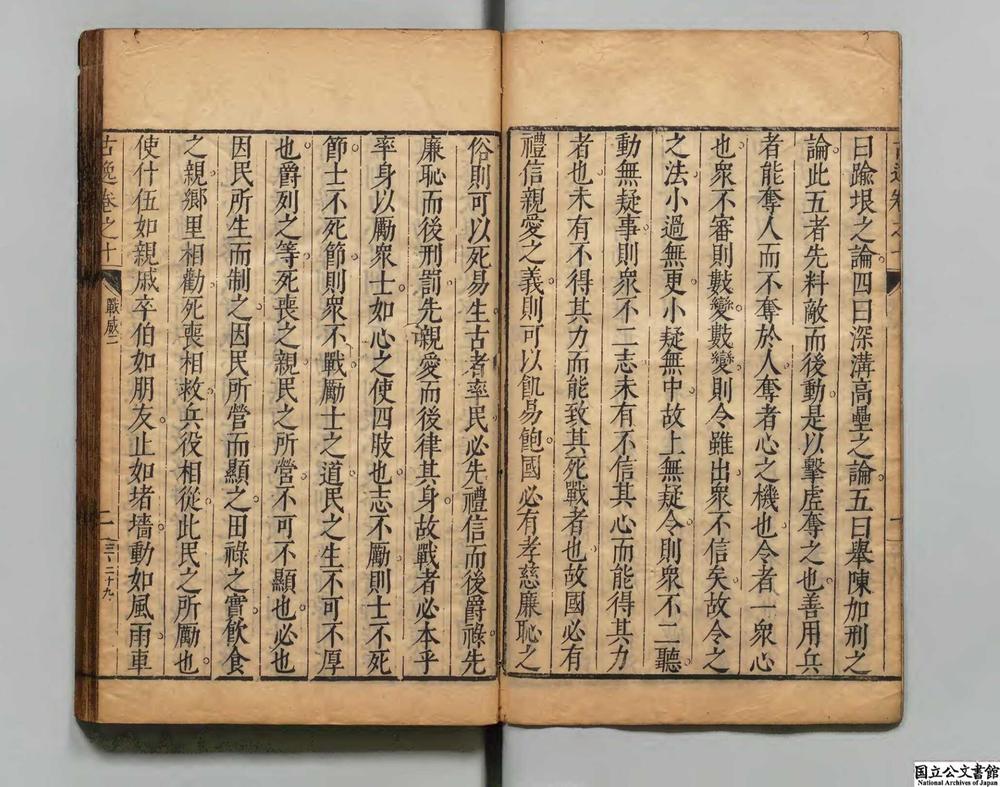 曰踰垠之論四曰深溝高壘之論五曰舉陳加刑之
論此五者先料敵而後動是以擊虛奪之也善用兵
者能奪人而不奪於人奪者心之機也令者一衆心
也衆不審則數變數變則令雖出衆不信矣故令之
之法小過無更小疑無中故上無疑令則衆不二聽
動無疑事則衆不二志未有不信其心而能得其力
者也未有不得其力而能致其死戰者也故國必有
禮信親愛之義則可以飢易飽國必有孝慈廉恥之
俗則可以死易生古者率民必先禮信而後爵祿先
廉恥而後刑罰先親愛而後律其身故戰者必本乎
率身以勵衆士如心之使四肢也志不勵則士不死
節士不死節則衆不戰勵士之道民之生不可不厚
也爵列之等死喪之親民之所營不可不顯也必也
因民所生而制之因民所營而顯之田祿之實飲食
之親鄉里相勸死喪相救兵役相從此民之所勵也
使什伍如親戚卒伯如朋友止如堵墻動如風雨車
古逸卷之十
戰威二
二
三百二十九
国立公文書館
National Archives of Japan